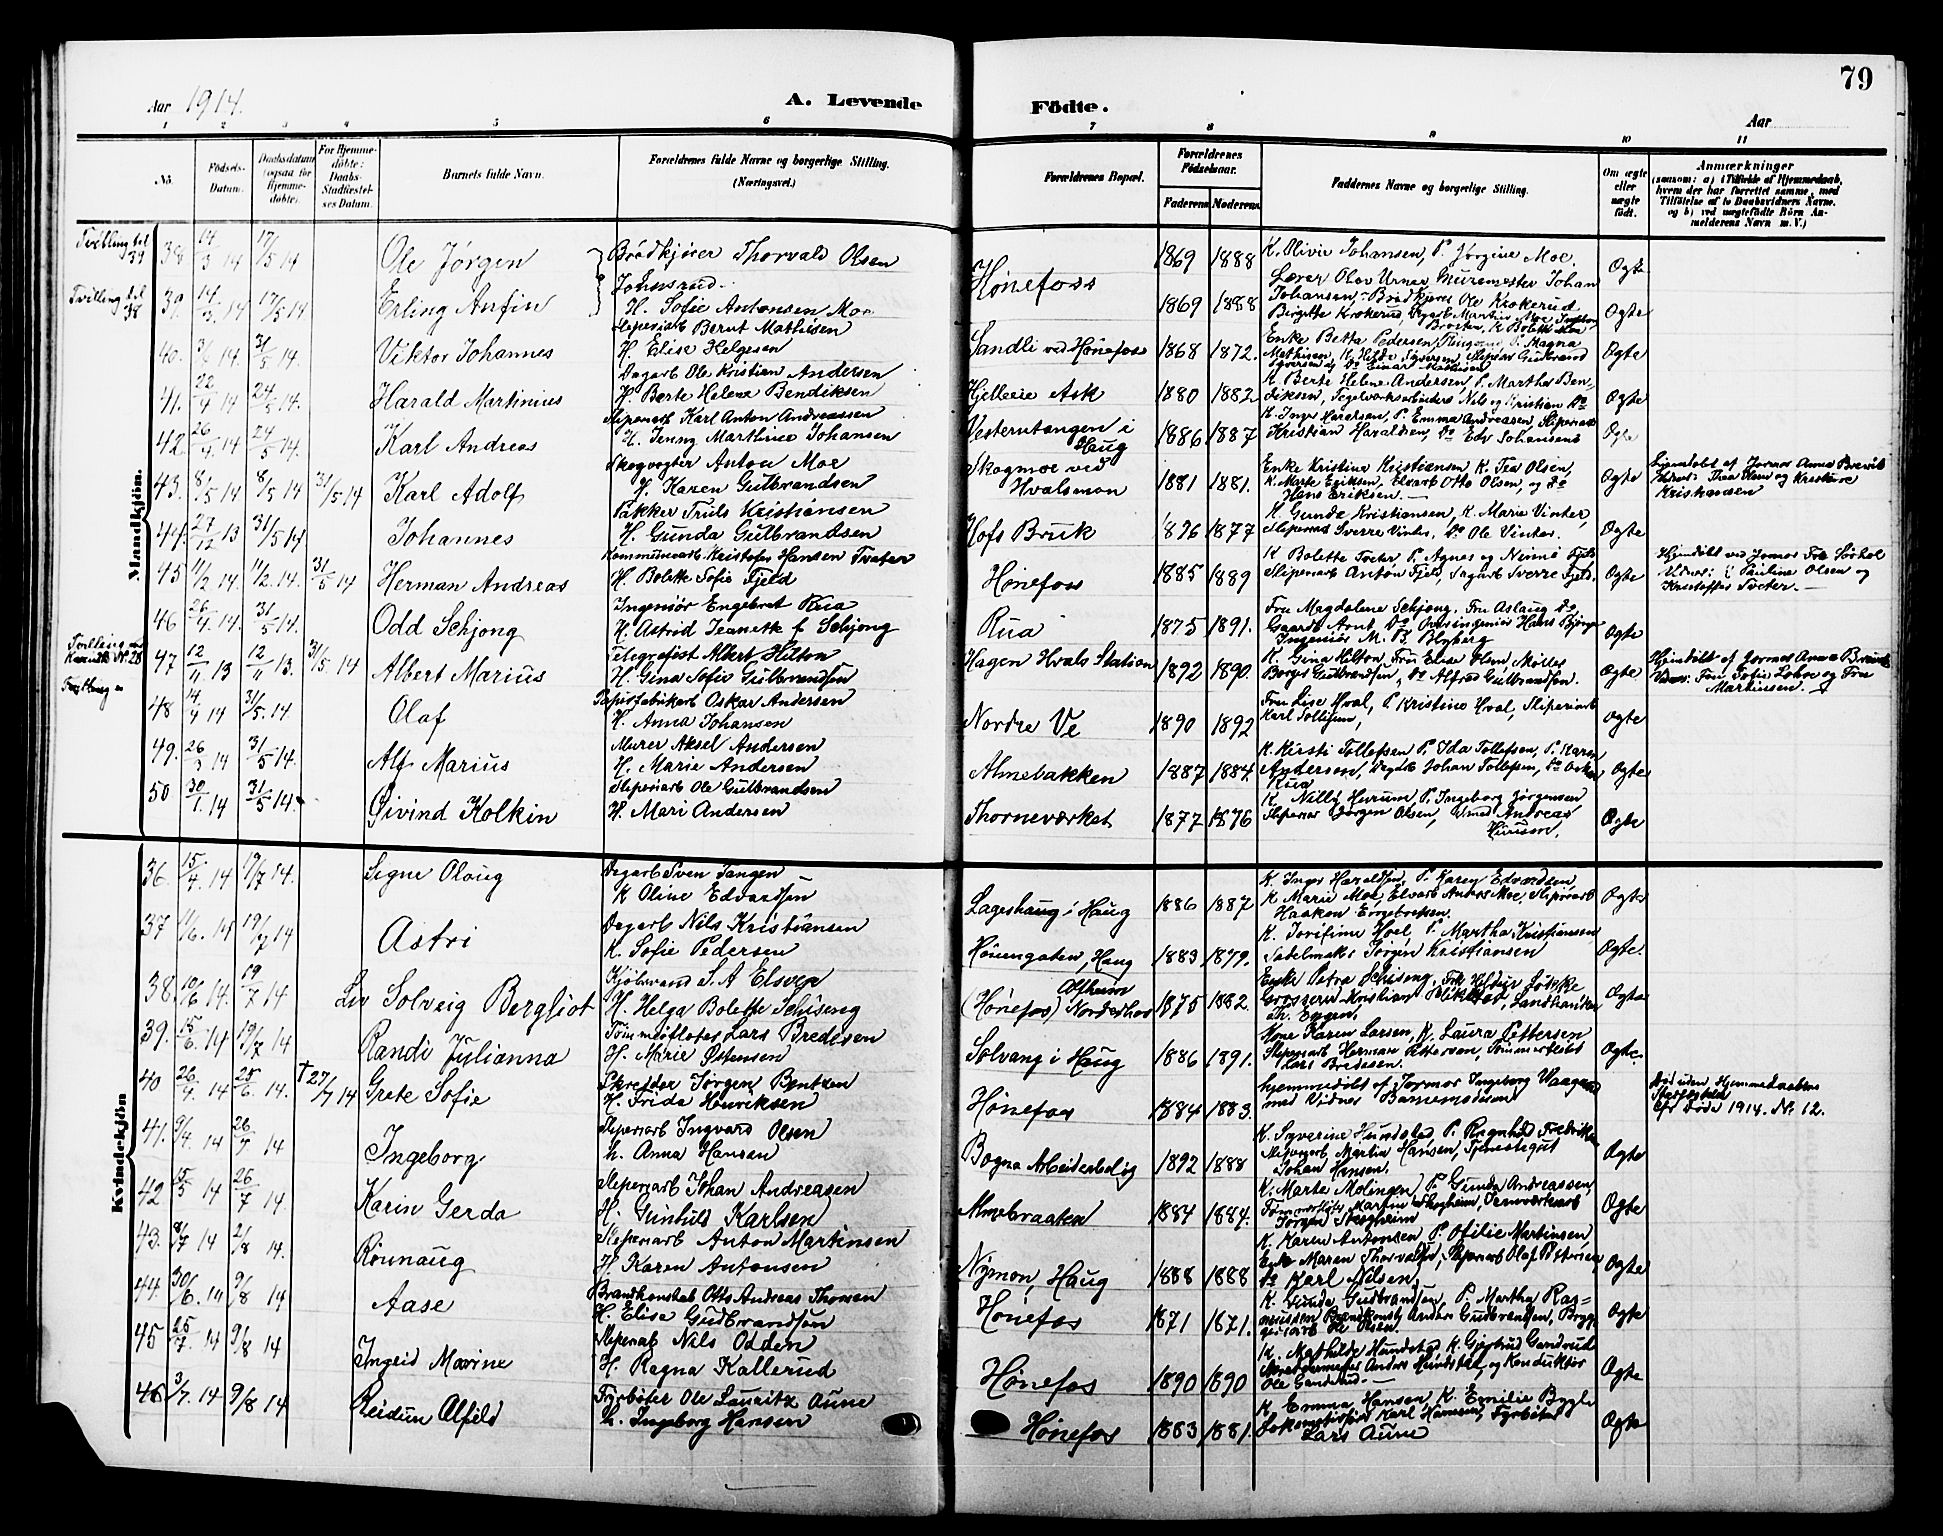 79
Aar 1914.
A. Levende
Födte.
Aar
1 2 3 4 5 6 7 8 9 10 11
No.
Födsels-Datum.
Daabsdatum (ogsaa for Hjemme-døbte).
For Hjemme-døbte: Daabs-Stadfæstel-ses Datum.
Barnets fulde Navn.
Forældrenes fulde Navne og borgerlige Stilling. (Næringsvei.)
Forældrenes Bopæl.
Forældrenes Födselsaar.
Faderens Moderens
Faddernes Navne og borgerlige Stilling.
Om ægte eller uægte födt.
Anmærkninger
(saasom: a) i Tilfælde af Hjemmedaab,
hvem der har forrettet samme, med
Tilföielse af to Daabsvidners Navne.
og b) ved uægtefödte Börn An-
melderens Navn m. V.)
Mandkjön.
Tvilling til 39
38 14/3 14 17/5 14 Ole Jørgen
Brödkjører Thorvald Olsen
Hønefoss 1869 1888
K. Olivie Johansen, P. Jørgine Moe,
Ægte
Tvilling til 38
39. 14/3 14 17/5 14 Erling Anfin
H. Sofie Antonsen Moe
1869 1888
Lærer Olav Urnes Muremester Johan
Johansen, Brödkjører Ole Krokerud
Birgitte Krokerud,
Ægte
40. 14 31/5 14. Viktor Johannes
Sliperiarb Bernt Mathisen
H. Elise Helgesen
Sandli ved Hønefos 1868 1872.
Enke Betha Pedersen
Ægte
41. 22/4 14 24/5 14. Harald Martinius
Dagarb Ole Kristian Andersen
H. Berte Helene Bendiksen
Hjelleie Ask 1880 1882
K. Berte Helene Andersen, P. Martha Ben-
diksen,
Ægte
42. 26/4 14 24/5 14. Karl Andreas
Sliperiarb Karl Anton Andreassen
H. Jenny Marthine Johansen
Vesterntangen i Haug 1886 1887
K. Inger Haraldsen, P. Emma Andreasen, Sliperiarb
Kristian Haraldsen, Do Edv Johansen
Ægte
43. 8/5 14 8/5 14 31/5 14 Karl Adolf
Skogvogter Anton Moe
H. Karen Gulbrandsen
Skogmoe ved Hvalsmon 1881 1881.
Enke Kristine Kristiansen K. Tea Olsen,
K. Marte Eriksen, Elvarb Otto Olsen, og do
Hans Eriksen.
Ægte
Hjemdöbt af Jormor Anna Brevik
Kristiansen
44. 27/12 13 31/5 14 Johannes
Pakker Truls Kristiansen
H. Gunda Gulbrandsen
Hofs Bruk 1876 1877
K. Gunda Kristiansen, K. Marie Vinter,
Sliperiarb Sverre Vinter, Do Ole Vinter.
Ægte
45 11/2 14. 11/2 14. 31/5 14 Herman Andreas
Kommunearb. Kristofer Hansen Tveter
H. Bolette Sofie Fjeld
Hønefos 1885 1889
K. Bolette Tveter, P. Agnes og Nimi Fjeld
Sliperiarb Anton Fjeld, Sagarb Sverre Fjeld.
Ægte
Pauline Olsen og
Kristoffer Tveter.
46 26/4 14. 31/5 14. Odd Schjong
Ingeniør Engebret Rua
H. Astrid Jeanette f Schjong
Rua 1875 1891.
Fru Magdalene Schjong, Fru Aslaug do,
Ingeniør M. B. Blyberg
Ægte
47 12/11 13 12/11 13. 31/5 14 Albert Marius
Telegrafist Albert Hilton
H. Gina Sofie Gulbrandsen
Hagen Hvals Station 1892 1890.
K. Gina Hilton, Fru Elise Olsen, Møller
Borger Gulbrandsen, Do Alfred Gulbrandsen.
Ægte
Hjemdöbt af Jormor Anna Brevik
Martinsen.
48 14/4 14 31/5. 14. Olaf
Papirfabrikarb Oskar Andersen
H. Anna Johansen
Nordre Ve 1890 1892
Fru Lise Hval, P. Kristine Hval, Sliperiarb
Karl Tollefsen,
Ægte
49. 26/3 14 31/5 14. Alf Marius
Murer Aksel Andersen
H. Marie Andersen
Almebakken 1887 1884.
K. Kirsti Tollefsen P. Ida Tollefsen, P. Karen
Andersen, Dagarb Johan Tollefsen, Do Oskar
Rua
Ægte
50 30/1. 14 31/5 14. Øivind Kolkin
Sliperiarb Ole Gulbrandsen
H. Mari Andersen
Thorneværket 1877 1876
K. Nilly Hurum, P. Ingeborg Jørgensen
Sliperiar Jørgen Olsen, Smed Andreas
Hurum.
Ægte
Kvindekjön
36. 15/4. 14 19/7 14. Signe Olaug
Dagarb Sven Tangen
K Oline Edvardsen
Lageshaug i Haug 1886 1887
K. Inger Haraldsen, P. Karen Edvardsen,
K Marie Moe, Elvarb Anders Moe, Sliperiarb
Haaken Engebretsen.
Ægte
37 11/6. 14 19/7 14 Astri
Dagarb Nils Kristiansen
K. Sofie Pedersen
Hönengaten, Haug 1883 1879.
K. Josefine Hoel P. Martha Kristiansen,
Sadelmaker Jørgen Kristiansen
Ægte.
38. 10/6 14. 19/7 14 Liv Solveig Bergliot
Kjöbmand S. A Elsrep
H. Helga Bolette Schiong
(Hönefos) Norderhov 1875 1882.
Enke Petra Schiong,
Ægte
39. 15/6 14 19/7 14 Randi Julianna
Tömmerfløter Lars Bredesen
H. Marie Østensen
Solvang i Haug 1886 1891.
Kone Karen Larsen, K. Laura Pettersen
Sliperiarb Herman Pettersen, Tömmerfløter
Lars Bredesen.
Ægte.
40 26/4 14 25/6. 14. †27/7 14 Grete Sofie
Skrædder Jørgen Bentzen
H. Frida Henriksen
Hønefos 1884 1883.
hjemmedöbt af Jormor Ingeborg Vaagaard
med Vidner Barnemoderen
Död uden Hjemmedaabens
Stadfæstelse
cfr. Döde 1914. Nr. 12.
41. 9/4 14 26/7 14 Ingeborg
Sliperiarb Ingvard Olsen
H. Anna Hansen
Bogna Arbeiderbolig 1892 1888
K. Syverine Hundstad P. Ragnhild Fredrikke
Sliperiarb, Martin Hansen, Tjenestegut
Johan Hansen.
Ægte
42 15/5 14 26/7 14 Karin Gerda
Sliperiarb Johan Andreasen
H. Gunhild Karlsen
Almebraaten 1884 1884.
K. Marte Molingen, P. Gunda Andreassen,
Jørgen Skogheim
Ægte
43. 8/7 14 2/8 14. Rönnaug
Sliperiarb Anton Martinsen
H. Karen Antonsen
Nymon, Haug 1888 1888
K. Karen Antonsen, P. Otilie Martinsen
Enke Maren Thorvaldsen, Sliperiarb Olaf Petersen
Do Karl Nilsen,
Ægte
44. 30/6. 14 9/8 14 Aase
Brandkonstab Otto Andreas Thomsen
H. Elise Gudbrandsen
Hönefos 1871 1871.
K. Gunda Gudbrandsen, P. Martha Ras-
mussen Brandkonst. Anders Gudbrandsen, Brygg
eriarb Ole Olsen.
Ægte
45 25/7. 14 9/8 14 Ingrid Marine
Sliperiarb Nils Odden
H. Ragna Kallerud
Hønefos 1890 1890
K. Mathilde Hundstad K. Gjertrud Ganderud
Anders Hundstad, og Konduktør
Ole Ganderud.
Ægte
46 3/7. 14 9/8 14 Reidun Alfild
Fyrböter Ole Lauritz Aune
H. Ingeborg Hansen
Hönefos 1883 1881.
K Emma Hansen, K. Emilie Bygle
Lokomotivfører Karl Hansen, Fyrböter
Lars Aune
Ægte